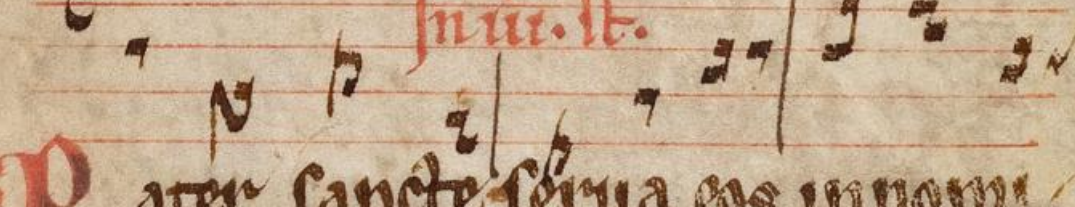 In iii. st.
Pater sancte serua eos in nomi